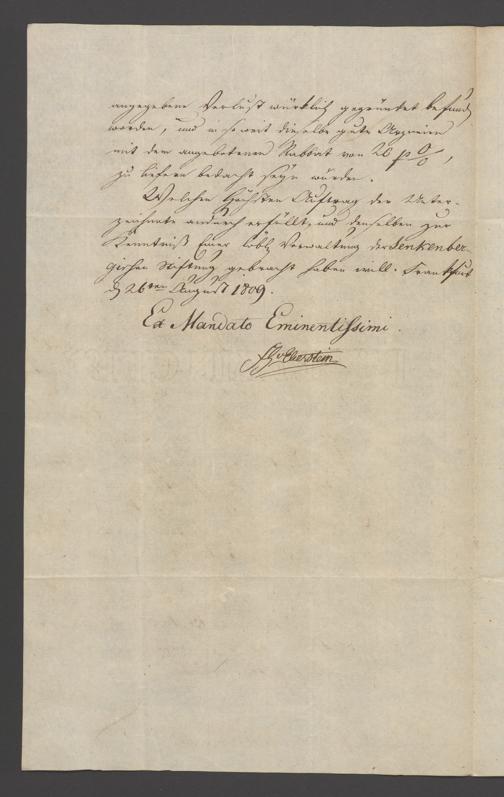 angegebene Verlust würklich gegründet befund
worden, und in soweit dieselbe gute Arzneien
mit dem angebotenen Rabbat von 20 p %,
zu liefern bedacht seyn würden.
Welchen höchsten Auftrag der Unter-
zeichnete andurch erfüllt, und denselben zur
Kenntniß Einer löbl. Verwaltung der Senkenber-
gischen Stiftung gebracht haben will. Frankfurt
d 26ten August 1809.
Ex Mandato Eminentissimi.
Eberstein